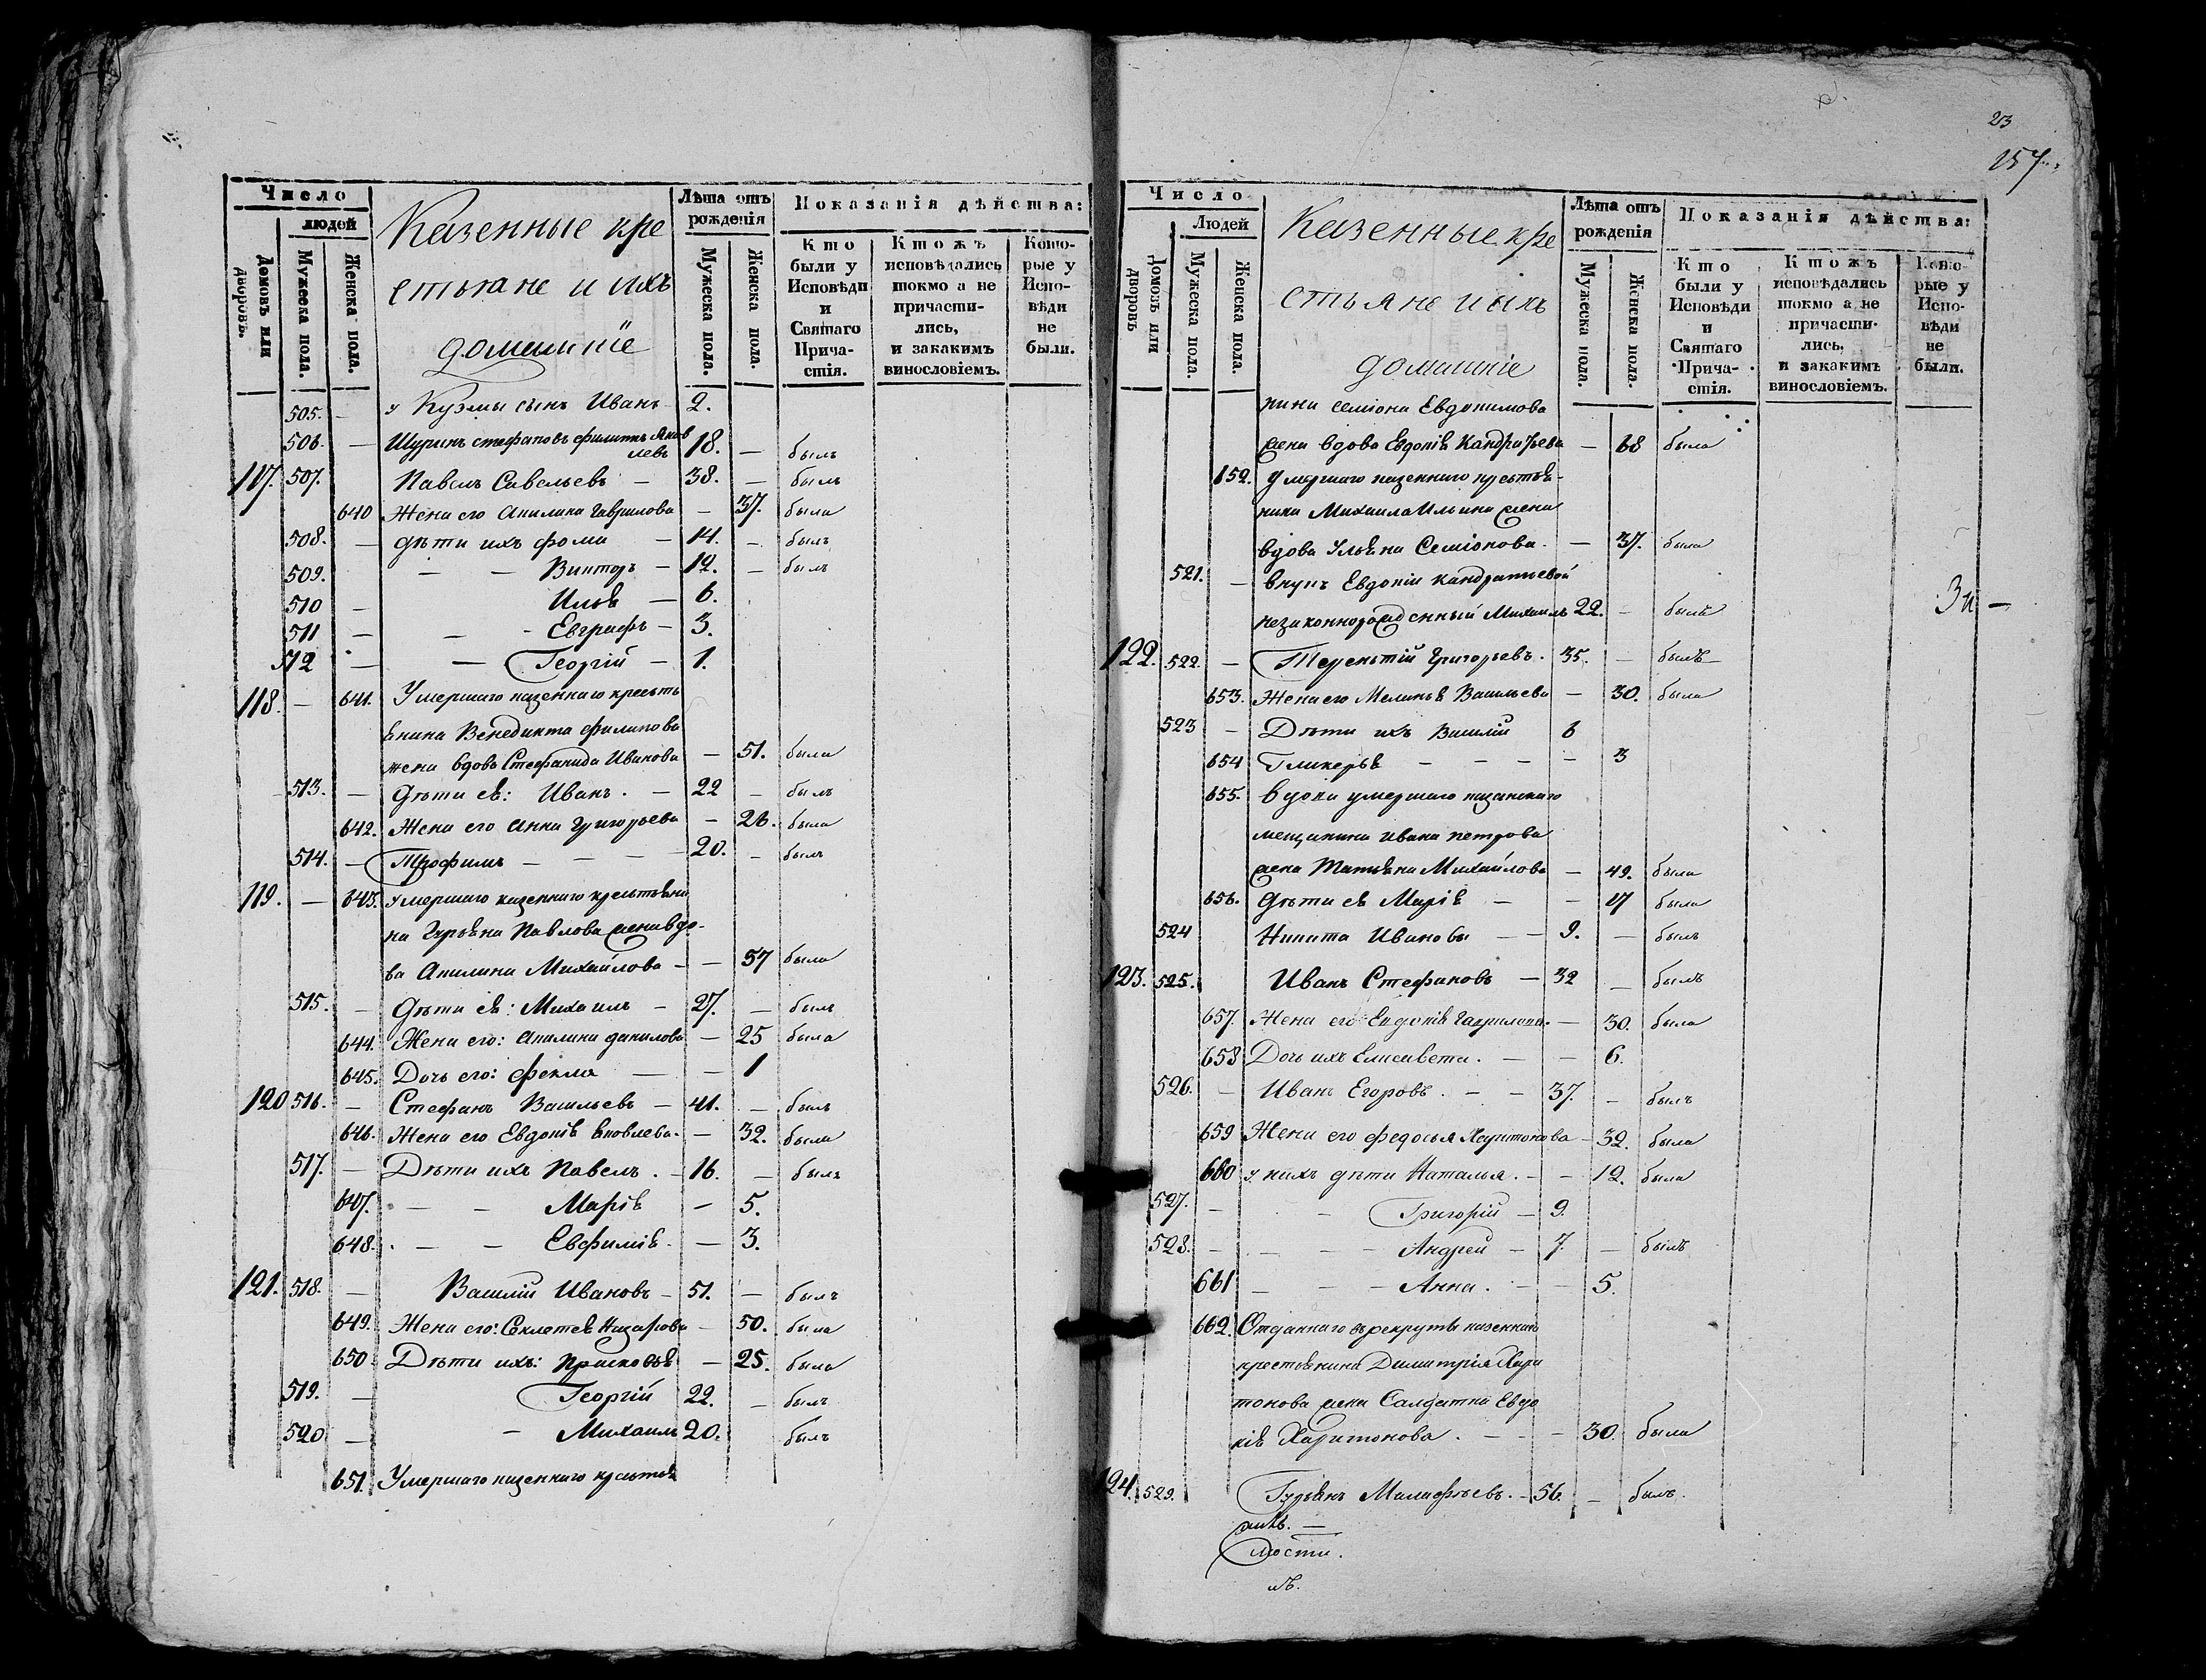 Число
людей
Домовъ или дворовъ.
Мужеска пола.
Женска пола.
Казенные кре
стьяне и ихъ
домашніе
Лѣта отъ рожденія
Мужеска пола.
Женска пола.
Показанія дѣйства:
Кто были у Исповѣди и Святаго Прича-стія.
Ктожъ исповѣдались токмо а не причасти-лись, и закакимъ винословіемъ.
Кото-рые у Испо-вѣди не были.
505. – у Кузмы сынъ Иванъ 2.
506. — Шуринъ стефановъ филиппъ Яков
левъ 18. – былъ
117. 507. Павелъ Савельевъ — 38. – былъ
640 Жена его Акилина Гаврилова – 37. была
508. — дѣти ихъ фома — 14. – былъ
509. — — Викторъ – 12. – былъ
510 — Илья — 6.
511 — — - Евграфъ – 3.
512 — — Георгій – 1.
118. – 641. Умершаго казеннаго кресть
янина Венедикта филипова
жена вдова Стефанида Иванова – 51. была
513. — Дѣти ея: Иванъ. — 22 – былъ
642. Жена его Анна Григорьева – 26. была
514. — Трофимъ — — — 20. – былъ
119. — 643. умершаго казеннаго крестьяни
на Гурьяна Павлова жена вдо-
ва Акилина Михайлова – – 57 была
515. — Дѣти ея: Михаилъ – 27. – былъ
644. Жена его: Акилина данилова – 25 была
645. Дочь его: фекла — – 1
120 516. — Стефанъ Васильевъ – 41. – былъ
646. Жена его Евдокія Яковлева. – 32. была
517. — Дѣти ихъ Павелъ. – 16. – былъ
647. – – Марія – 5.
648. – – Евфимія. – 3.
121. 518. — Василій Ивановъ – 51. – былъ
649. Жена его: Секлетея Назарова – 50. была
650 Дѣти ихъ: Прасковья – 25. была
519. — Георгій 22. – былъ
520 — – Михаилъ 20. былъ
651. Умершаго казеннаго крестья
23
157
Число
Людей
Домовъ или дворовъ
Мужеска пола.
Женска пола.
Казенные кре
стьяне и ихъ
домашніе
Лѣта отъ рожденія
Мужеска пола.
Женска пола.
Показанія дѣйства:
Кто были у Исповѣди и Святаго Прича-стія.
Ктожъ исповѣдались токмо а не причасти-лись, и закакимъ винословіемъ.
Кото-рые у Испо-вѣди не были.
нина семіона Евдокимова
жена вдова Евдокія Кандратьева – 68 была
652. Умершаго казеннаго крестья-
нина Михаила Ильина жена
вдова Ульяна Семіонова. – 37. была
521. – внукъ Евдокіи Кандратьевой
незаконнорожденный Михаилъ 22. – былъ
122. 522. — Терентій Григорьевъ. 35. – былъ
653. Жена его Меланья Васильева – 30. была
523 – Дѣти ихъ Василій 6
654 Гликерья – – – – 3
655. Вдова умершаго казанскаго
мещанина Ивана петрова
жена Татьяна Михайлова – 49. была
656. Дѣти ея Марія – – 17 была
524 Никита Ивановы – – 9. – былъ
123. 525. Иванъ Стефановъ – 32 – былъ
657. Жена его Евдокія Гаврилова. – 30. была
658 Дочь ихъ Елисавета. – – 6.
526. – Иванъ Егоровъ. – – 37. – былъ
659 Жена его федосья Харитонова – 32. была
660 у нихъ дѣти Наталья. – – 12. была
527. – – Григорій – 9.
528. – – – – Андрей – 7. – былъ
661 – – – Анна. – – 5.
662. Отданнаго въ рекруты казеннаго
крестьянина Димитрія Хари
тонова жена Салдатка Евдо
кія Харитонова. – – – 30. была
124. 529. Гурьянъ Малафѣевъ. – 56. – былъ.